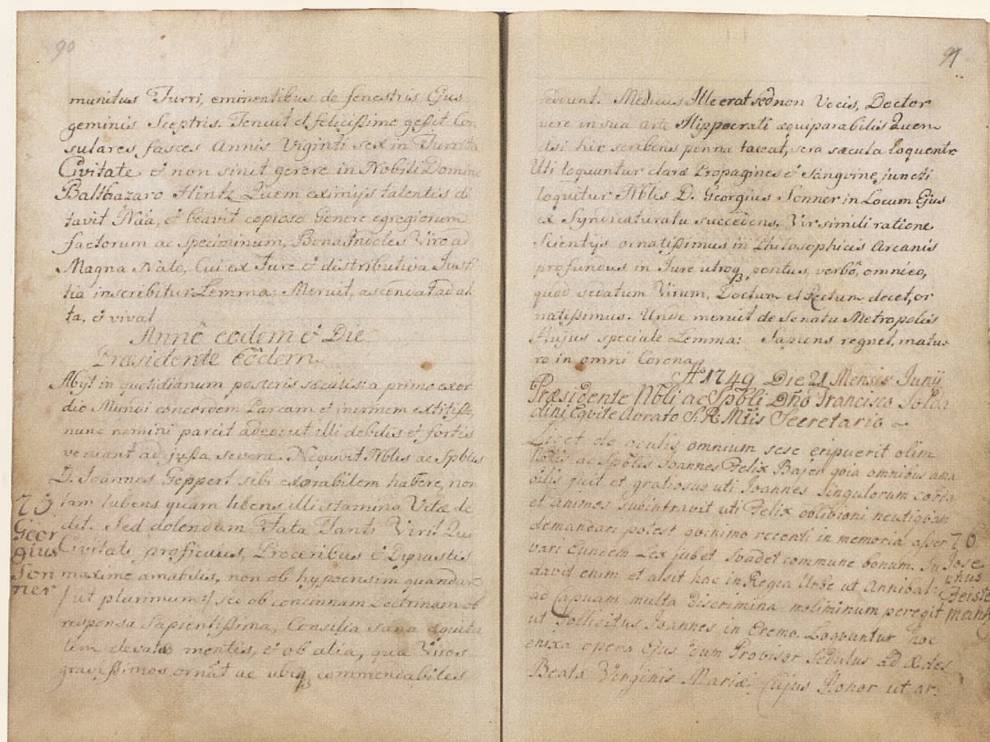 90
munitus Turri, eminentibus de fenestris Ejus
geminis Sceptris. Tenuit et felicissime gessit Con
sulares fasces Annis Viginti sex in Turrita
Civitate et non sinit gerere in Nobili Domino
Balthazaro Hintz Quem eximijs talentis di
tavit Naa, et beavit copioso Genere egregiorum
factorum ac Speciminum, Bona Indoles Viro ad
Magna Nato, Cui ex Jure et distributiva Justi
tia inscribitur Lemma: Meruit, ascendat ad al
ta, et vivat
Anno eodem et Die
Præsidente eodem
Abijt in quotidianum posteris sæculis: a primo exor
dio Mundi concordem Parcam et inermem extitisse,
nunc nemini parcit adæquat illi debiles et fortes
veniant ad jussa severa. Nequivit Nblis ac Spblis
D. Joannes Geppert sibi exorabilem habere, non
tam lubens quam libens illi stamina Vitæ de
dit. Sed dolendum Fata Tanti Viri! Qui
Civitati proficuus, Proceribus et Dynastis
maxime amabilis, non ob hypocrisim quandam
/ut plurimum:/ sed ob concinnam Doctrinam ob
responsa Sapientissima, Consilia sana æquita
tem elevatæ mentis, et ob alia, quæ Viros
gravissimos ornat ac ubiq commendabiles
73
Geor
gius
Son
ner
91
reddunt. Medicus Ille erat sed non Vocis, Doctor
vere in sua arte Hippocrati æquiparabilis Quem
etsi hic scribens penna taceat, sera sæcula loquentr
Uti loquuntur clara Propagines et Sanguine juncti
loquitur Nblis D. Georgius Sonner in Locum Ejus
ex Syndicaturatu succedens. Vir simili ratione
Scientijs ornatissimus in Philosophicis Arcanis
profundus in Jure utroq, pontus, verbo, omnico,
quod sedatum Virum, Doctum et Rectum decet, or
natissimus. Unde meruit de Senatu Metropolis
Hujus speciale Lemma: Sapiens regnet, matu
ro in omni Corona
Ao 1749 Die 21 Mensis Junij
Præsidente Nbli ac Spbli Dno Francisco Solda
dini Equite Aurato S.R.Mtis Secretario
Licet de oculis omnium sese eripuerit olim
Nblis ac Spblis Joannes Felix Bajer quia omnibus ama
bilis fuit et gratiosus uti Joannes singulorum corda
et animos subintravit uti Felix oblivioni neutiquam
demandari potest quinimo recenti in memoria asser
vari Eundem Lex jubet Suadet commune bonum. Su
davit enim et alsit hac in Regia Urbe ut Annibal
ad Capuam multa Discrimina moliminum peregit
ut Sollicitus Joannes in Eremo. Loquuntur hoc
enixa opera Ejus cum Provisor Sedulus ad Ædes
Beatæ Virginis Mariæ, Cujus Honor ut ar
70
Jose
phus